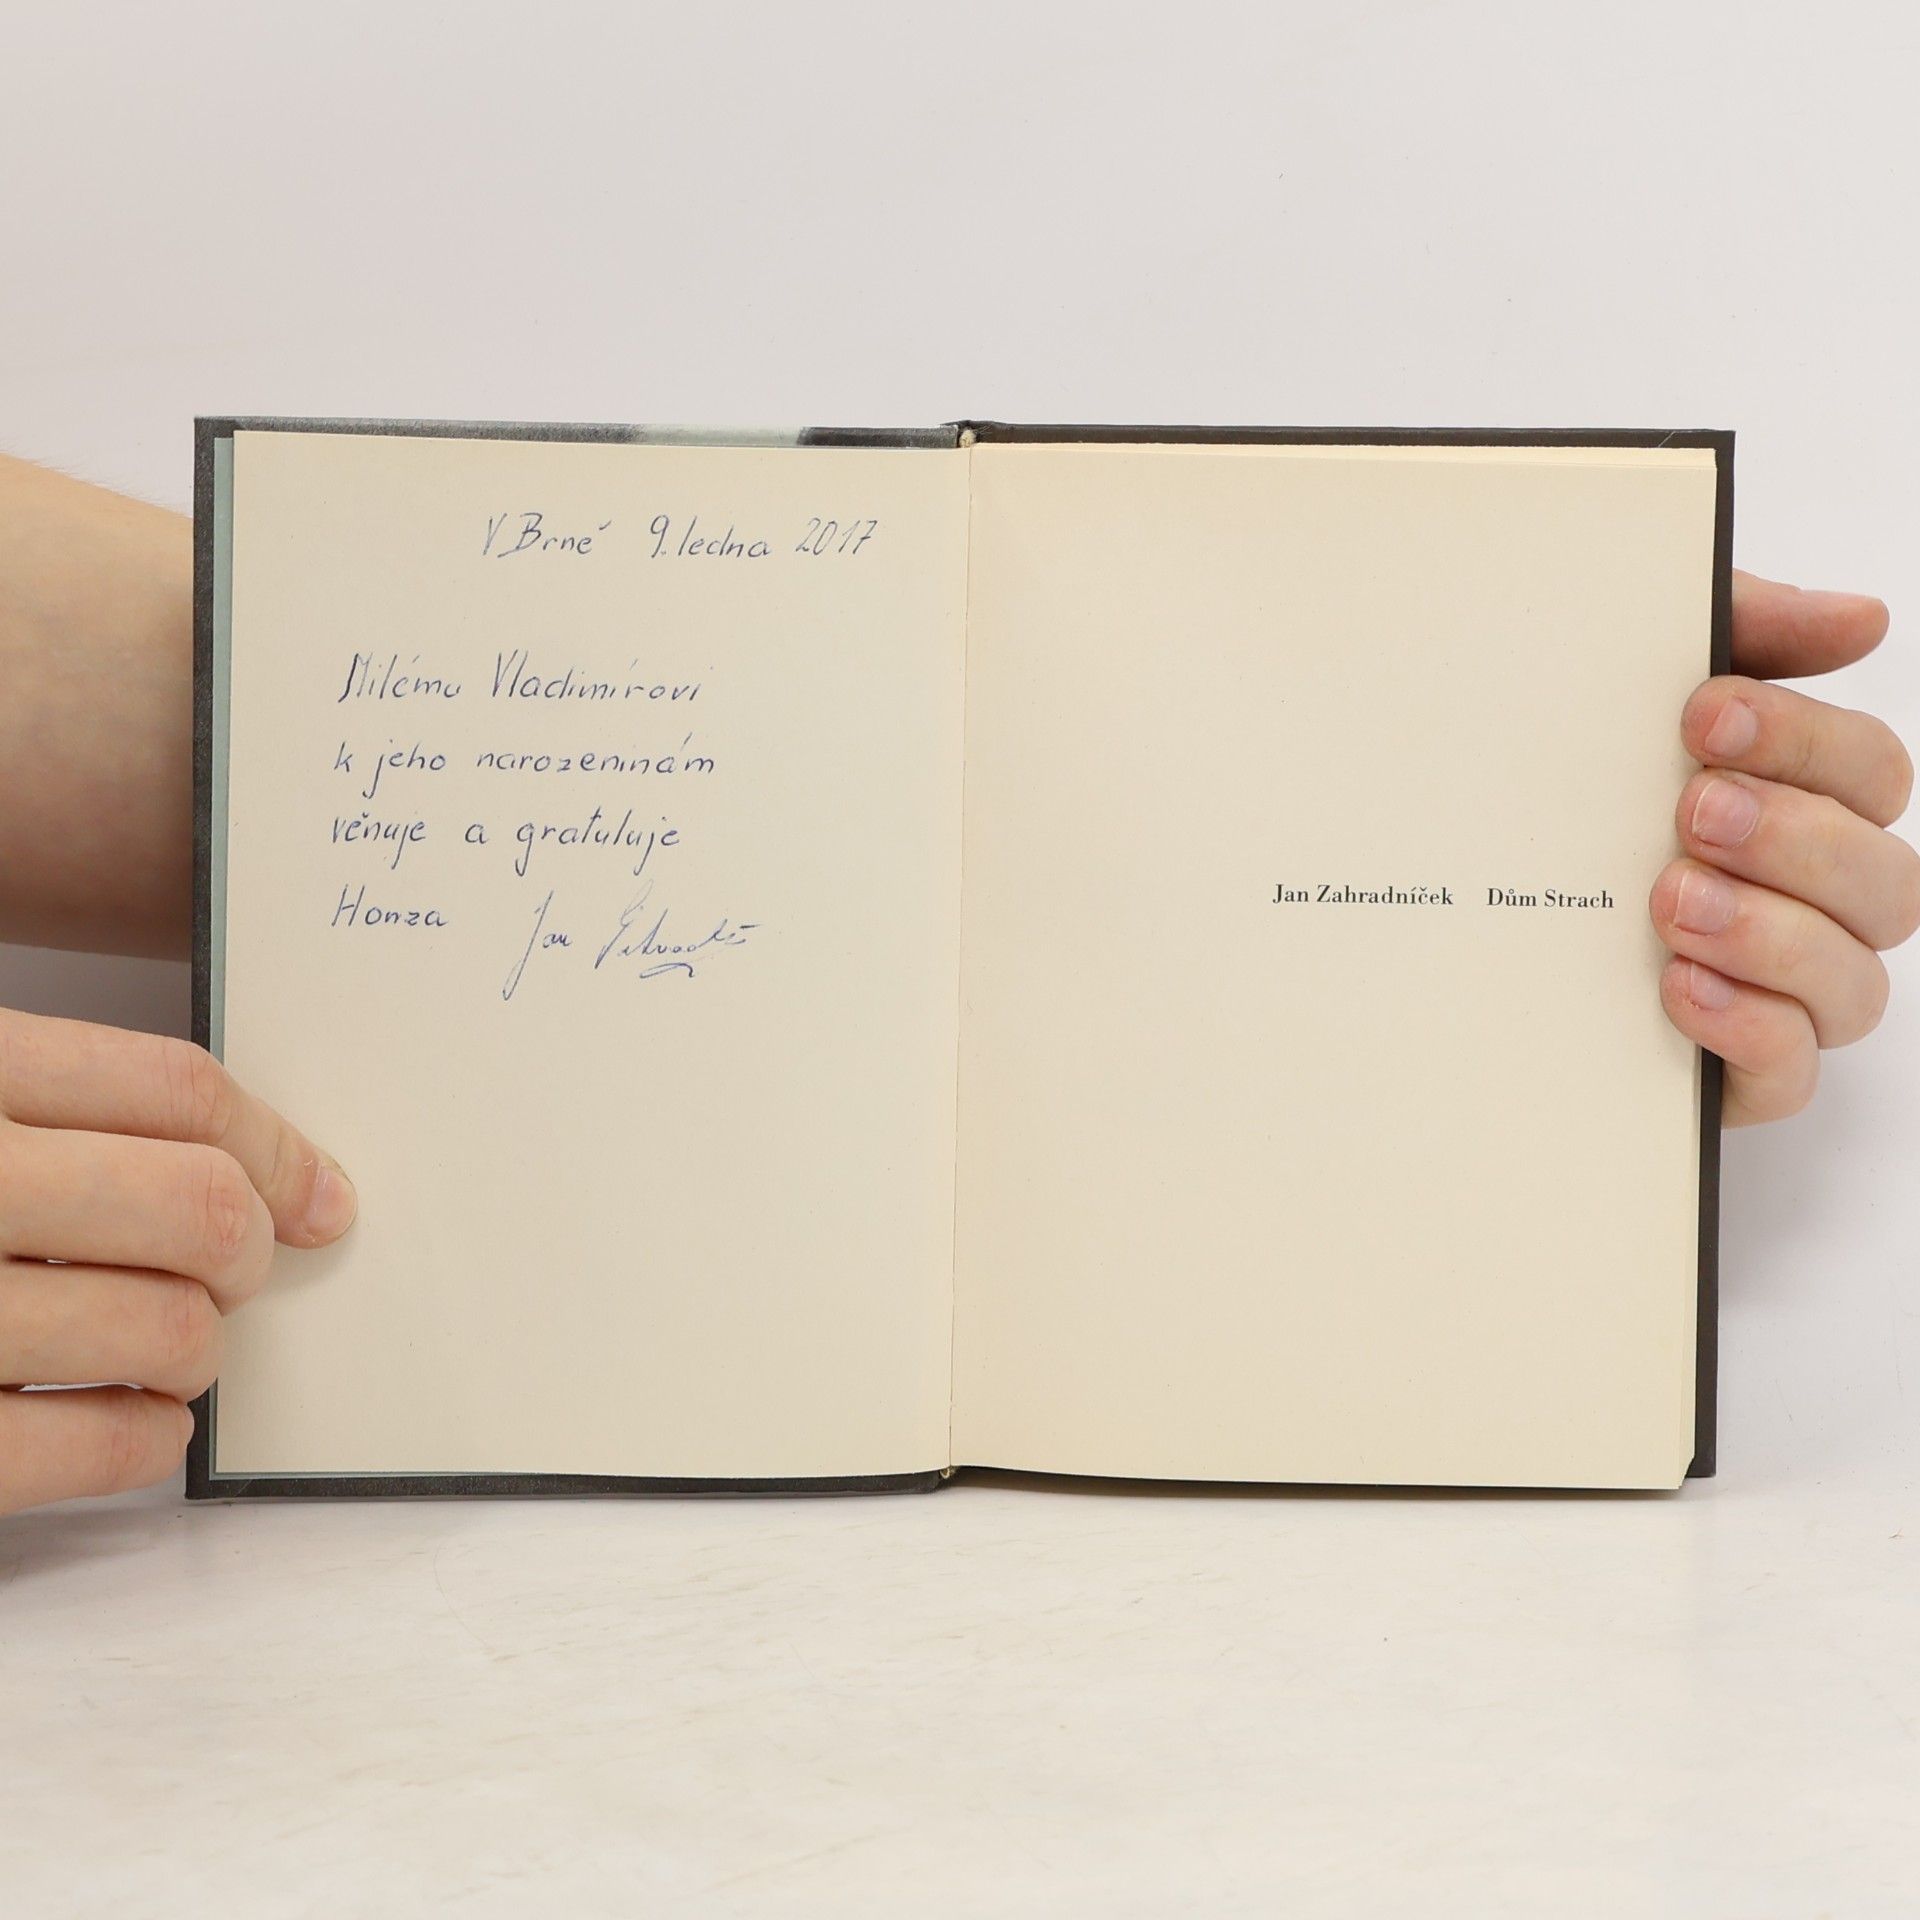 V Brně 9. ledna 2017
Milému Vladimírovi
k jeho narozeninám
věnuje a gratuluje
Honza Jan
Jan Zahradníček Dům Strach